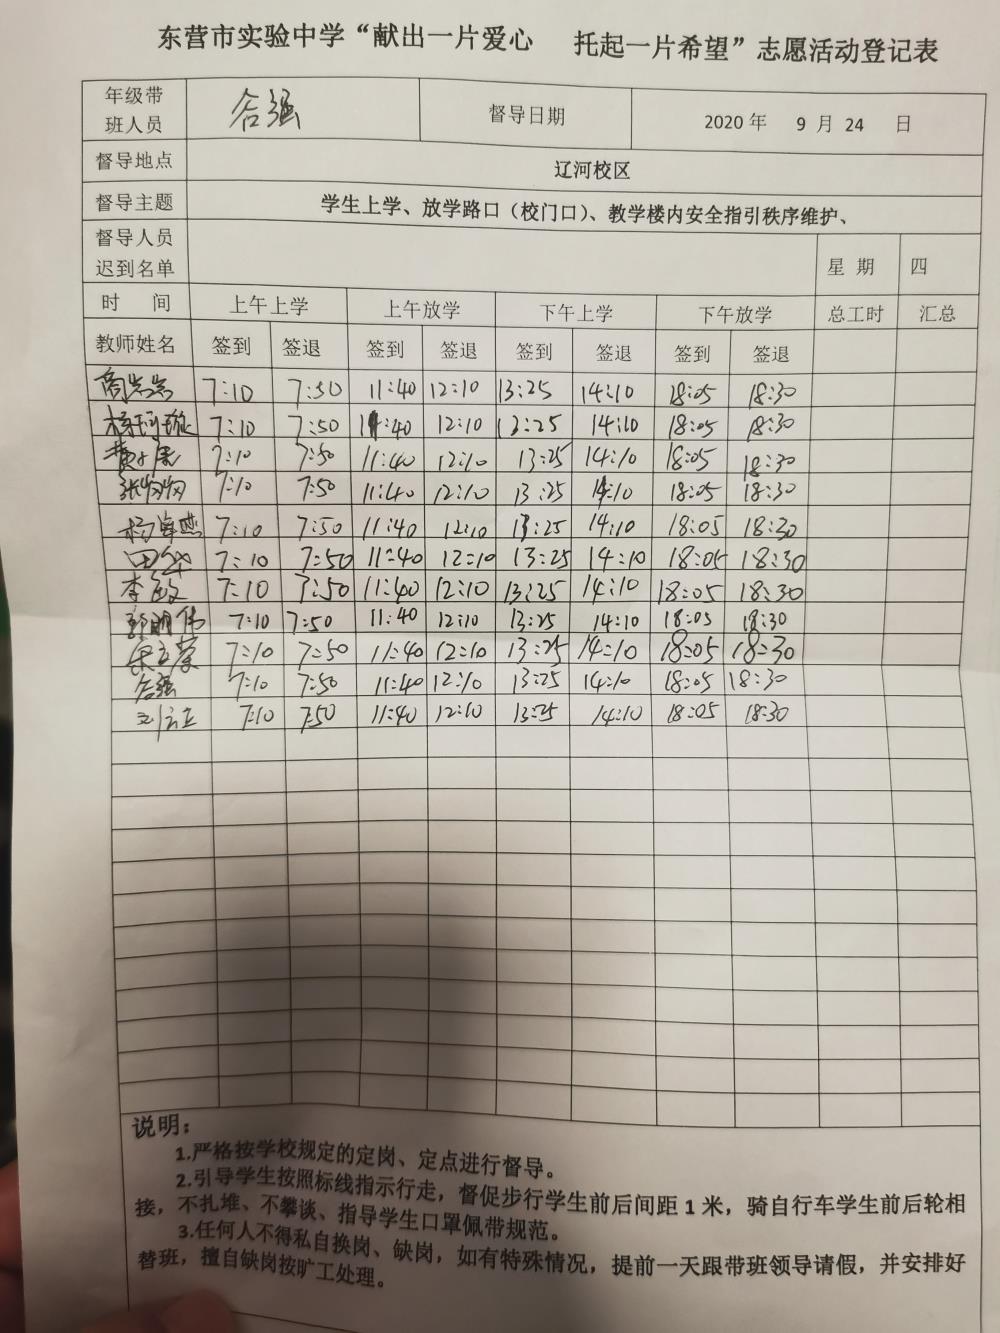 东营市实验中学“献出一片爱心 托起一片希望”志愿活动登记表
年级带班人员 合强 督导日期 2020 年 9 月 24 日
督导地点 辽河校区
督导主题 学生上学、放学路口（校门口）、教学楼内安全指引秩序维护、
督导人员迟到名单 星 期 四
时 间 上午上学 上午放学 下午上学 下午放学 总工时 汇总
教师姓名 签到 签退 签到 签退 签到 签退 签到 签退
7:10 7:50 11:40 12:10 13:25 14:10 18:05 18:30
7:10 7:50 11:40 12:10 13:25 14:10 18:05 18:30
7:10 7:50 11:40 12:10 13:25 14:10 18:05 18:30
7:10 7:50 11:40 12:10 13:25 14:10 18:05 18:30
7:10 7:50 11:40 12:10 13:25 14:10 18:05 18:30
田华 7:10 7:50 11:40 12:10 13:25 14:10 18:05 18:30
李敏 7:10 7:50 11:40 12:10 13:25 14:10 18:05 18:30
郭明伟 7:10 7:50 11:40 12:10 13:25 14:10 18:05 18:30
7:10 7:50 11:40 12:10 13:25 14:10 18:05 18:30
合强 7:10 7:50 11:40 12:10 13:25 14:10 18:05 18:30
7:10 7:50 11:40 12:10 13:25 14:10 18:05 18:30
说明：
1.严格按学校规定的定岗、定点进行督导。
2.引导学生按照标线指示行走，督促步行学生前后间距 1 米，骑自行车学生前后轮相
接，不扎堆、不攀谈、指导学生口罩佩带规范。
3.任何人不得私自换岗、缺岗，如有特殊情况，提前一天跟带班领导请假，并安排好
替班，擅自缺岗按旷工处理。